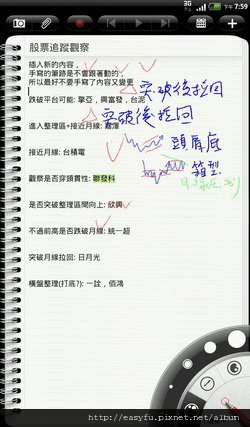 3G
下午 7:59
股票追蹤觀察
插入新的內容，
手寫的筆跡是不會跟著動的，
所以最好不要手寫了內容又變更
突破後拉回
跌破平台可能: 擎亞, 興富發, 台泥
突破後拉回
進入整理區+接近月線: 嘉澤
頭肩底
接近月線: 台積電
箱型
觀察是否穿頭貫性: 聯發科
是否突破整理區間向上: 欣興
不過前高是否跌破月線: 統一超
突破月線拉回: 日月光
橫盤整理(打底?): 一詮, 佰鴻
http://easyfu.pixnet.net/album